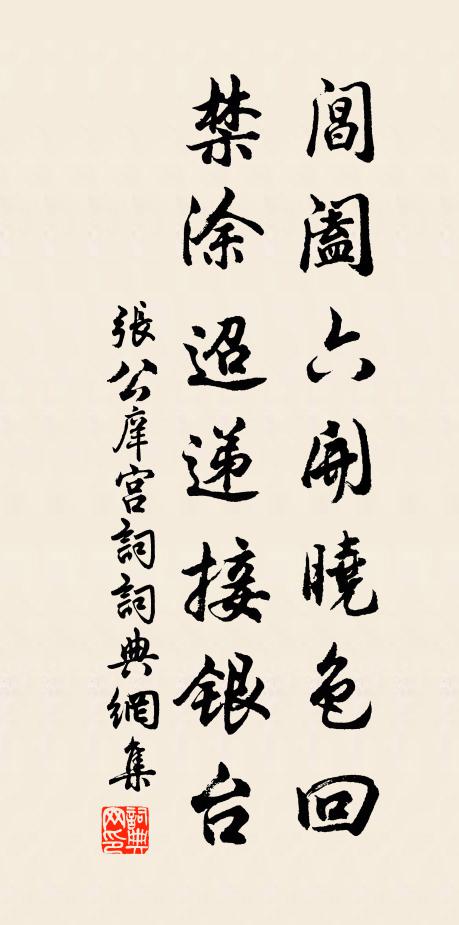 閶闔六開曉色回
禁涂迢递接銀台
張公庠宫詞詞典網集
詞典网印